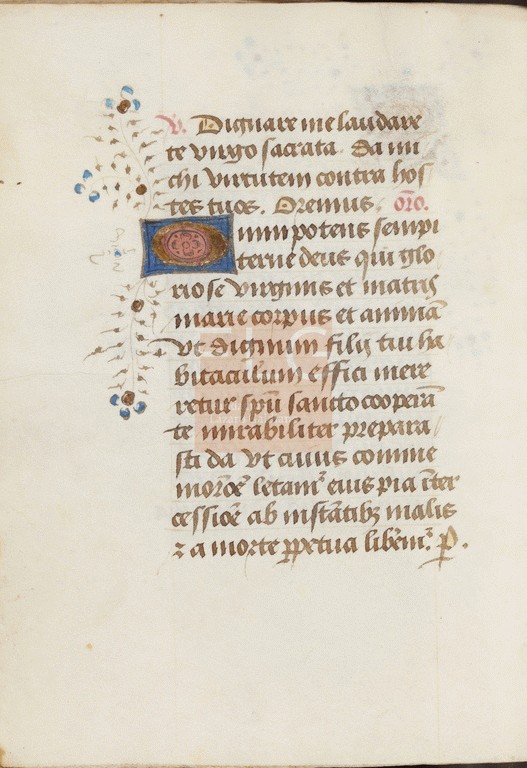 V. Dignare me laudare
te virgo sacrata. Da mi
chi virtutem contra hos
tes tuos. Oremus. or̄o.
Omnipotens sempi
terne deus qui glo
riose virginis et matris
marie corpus et animā
vt dignum filij tui ha
bitaculum effici mere
retur spū sancto cooperā
te mirabiliter prepara
sti da vt cuius comme
mor̄oē letamr̄ eius pia īter
cessiōe ab instātibꝫ malis
⁊ a morte ꝑpetua liberēmr̄. P.